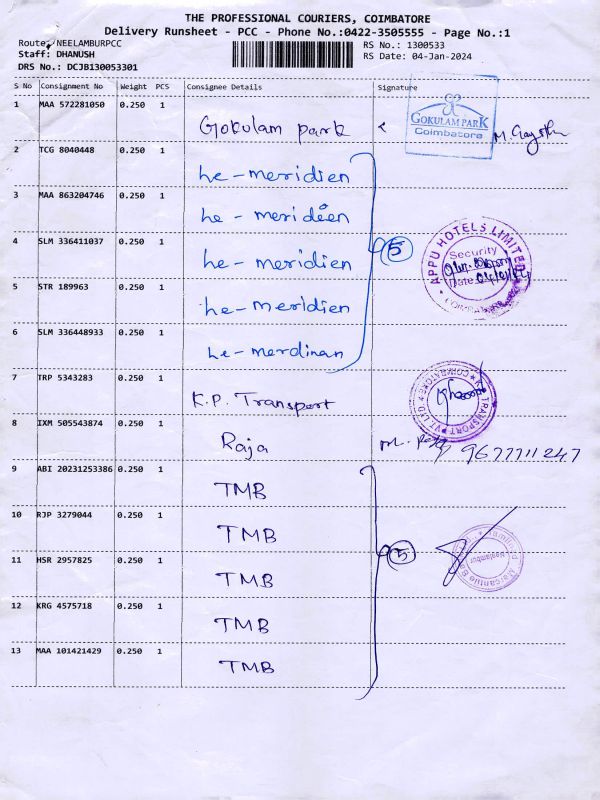 THE PROFESSIONAL COURIERS, COIMBATORE
Delivery Runsheet - PCC - Phone No.:0422-3505555 - Page No.:1
Route: NEELAMBURPCC
RS No.: 1300533
Staff: DHANUSH
RS Date: 04-Jan-2024
DRS No.: DCJB130053301
S No Consignment No Weight PCS Consignee Details Signature
1 MAA 572281050 0.250 1
Gokulam park
GOKULAM PARK
Coimbatore
2 TCG 8040448 0.250 1
he-meridien
3 MAA 863204746 0.250 1
he-merideen
4 SLM 336411037 0.250 1
he-meridien
5
APPU HOTELS LIMITED
Security
Date 04/01/24
5 STR 189963 0.250 1
he-meridien
6 SLM 336448933 0.250 1
he-merdinan
7 TRP 5343283 0.250 1
K.P. Transport
TRANSPORT PVT LTD
COIMBATORE
8 IXM 505543874 0.250 1
Raja
9677711247
9 ABI 20231253386 0.250 1
TMB
10 RJP 3279044 0.250 1
TMB
5
Neelambur
11 HSR 2957825 0.250 1
TMB
12 KRG 4575718 0.250 1
TMB
13 MAA 101421429 0.250 1
TMB